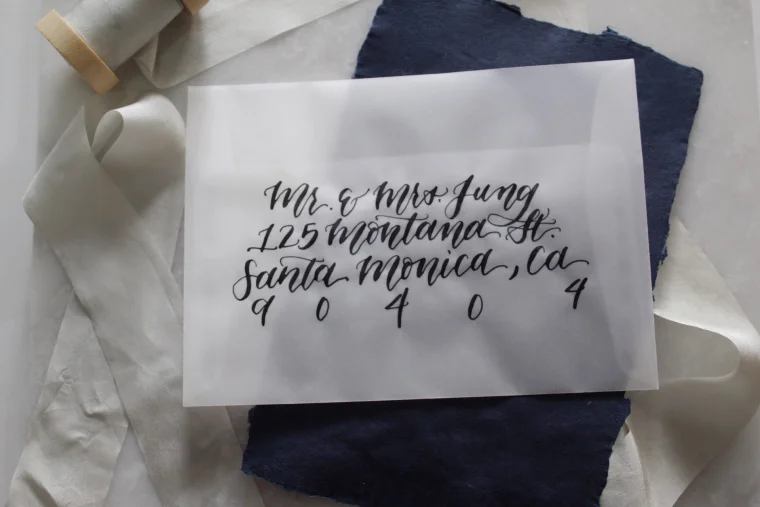 Mr. & Mrs. Jung
125 Montana St.
Santa Monica, Ca
9 0 4 0 4